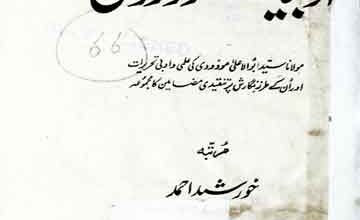 66
مولانا سید ابوالاعلیٰ مودودی کی علمی و ادبی تحریرات
اور اُن کے طرزِ نگارش پر تنقیدی مضامین کا مجموعہ
مرتبہ
خورشید احمد